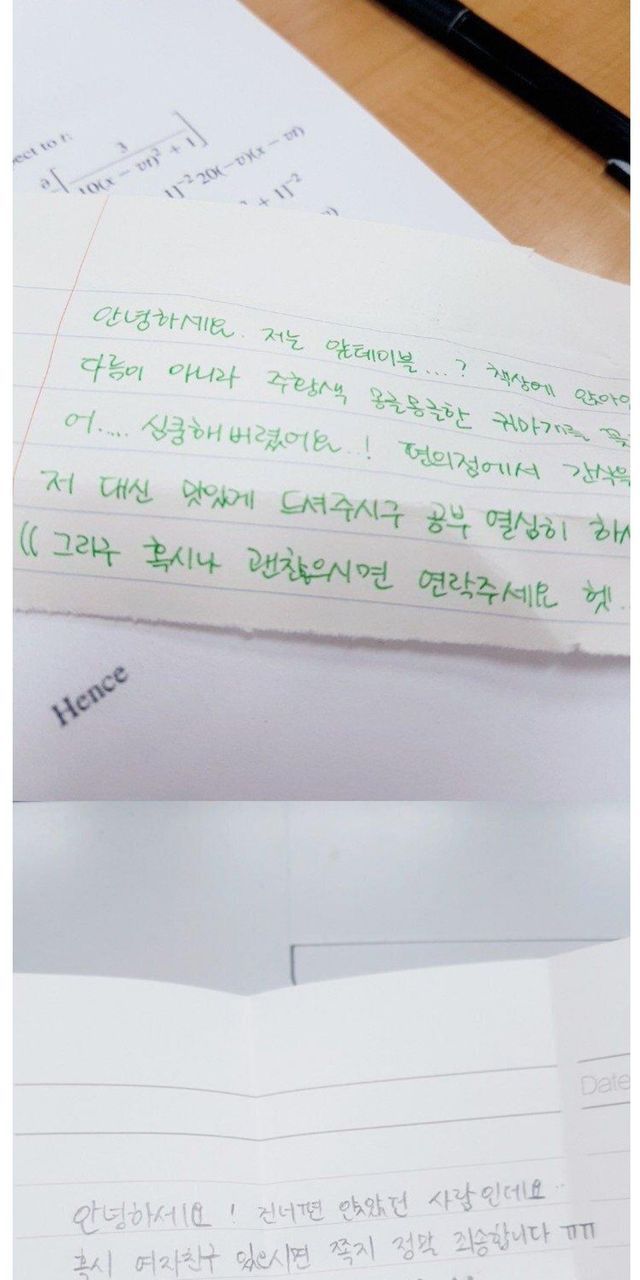 ect to t:
∂[ 3
10(x − vt)² + 1 ]
1]⁻² 20(−v)(x − vt)
+ 1]⁻²
안녕하세요. 저는 앞테이블...? 책상에 앉아
다름이 아니라 주황색 몽글몽글한 귀마개를
어.... 심쿵해버렸어요..! 편의점에서 간식을
저 대신 맛있게 드셔주시구 공부 열심히 하
(( 그리구 혹시나 괜찮으시면 연락주세요 헷..
Hence
Date
안녕하세요! 건너편 앉았던 사람인데요..
혹시 여자친구 있으시면 쪽지 정말 죄송합니다 ㅠㅠ